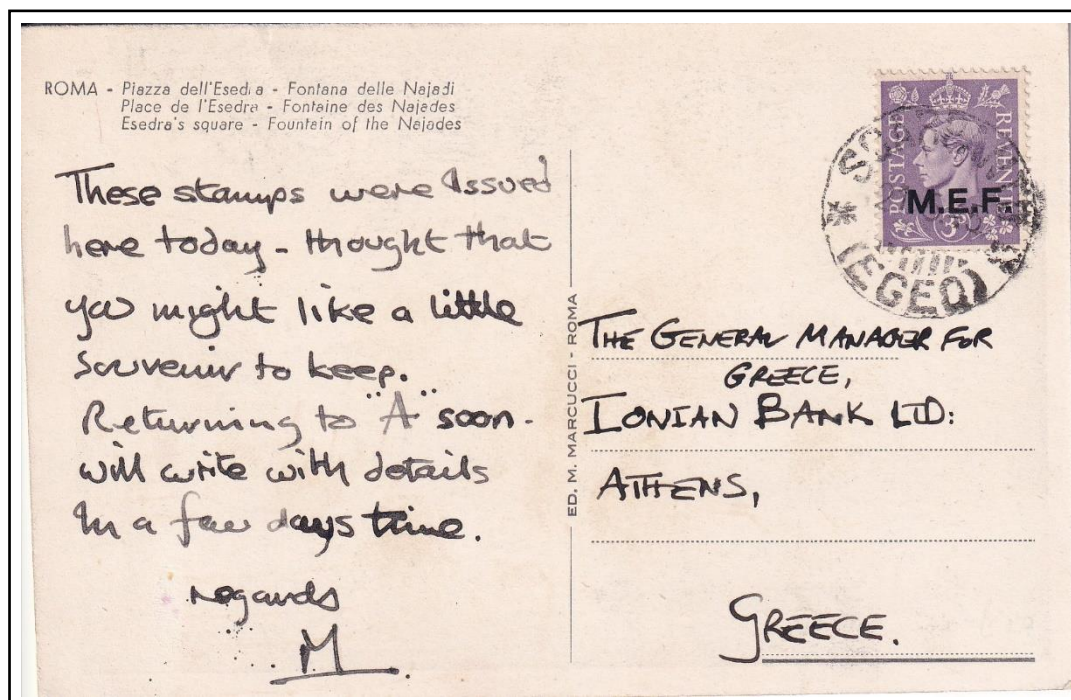 ROMA - Piazza dell'Esedra - Fontana delle Najadi
Place de l'Esedra - Fontaine des Najades
Esedra's square - Fountain of the Najades
These stamps were issued
here today - thought that
you might like a little
souvenir to keep.
Returning to "A" soon -
will write with details
in a few days time.
regards
M
ED. M. MARCUCCI - ROMA
POSTAGE
REVENUE
M.E.F.
3D
(EGEO)
THE GENERAL MANAGER FOR
GREECE,
IONIAN BANK LTD:
ATHENS,
GREECE.